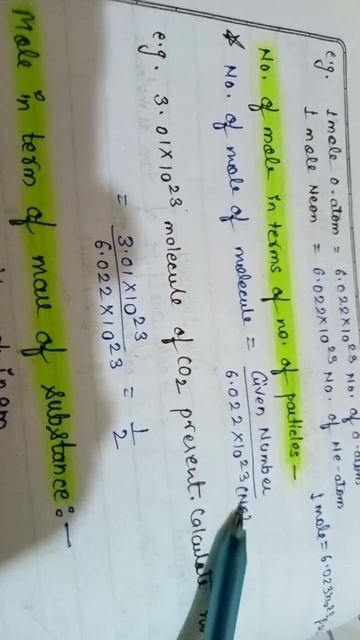 e.g. 1 mole O-atom = 6.022×10²³ No. of O-atom
1 mole Neon = 6.022×10²³ No. of Ne-atom
1 mole = 6.023×10²³
No. of mole in terms of no. of particles -
* No. of mole of molecule = Given Number
6.022×10²³ (NA)
e.g. 3.01×10²³ molecule of CO2 present. Calculate
= 3.01×10²³ / 6.022×10²³ = 1/2
Mole in term of mass of substance :-